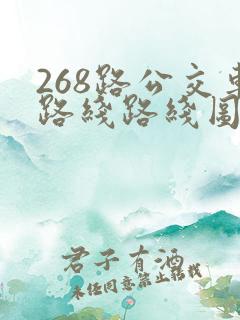 268路公交车
路线路线图
君子有酒
未经同意禁止转载